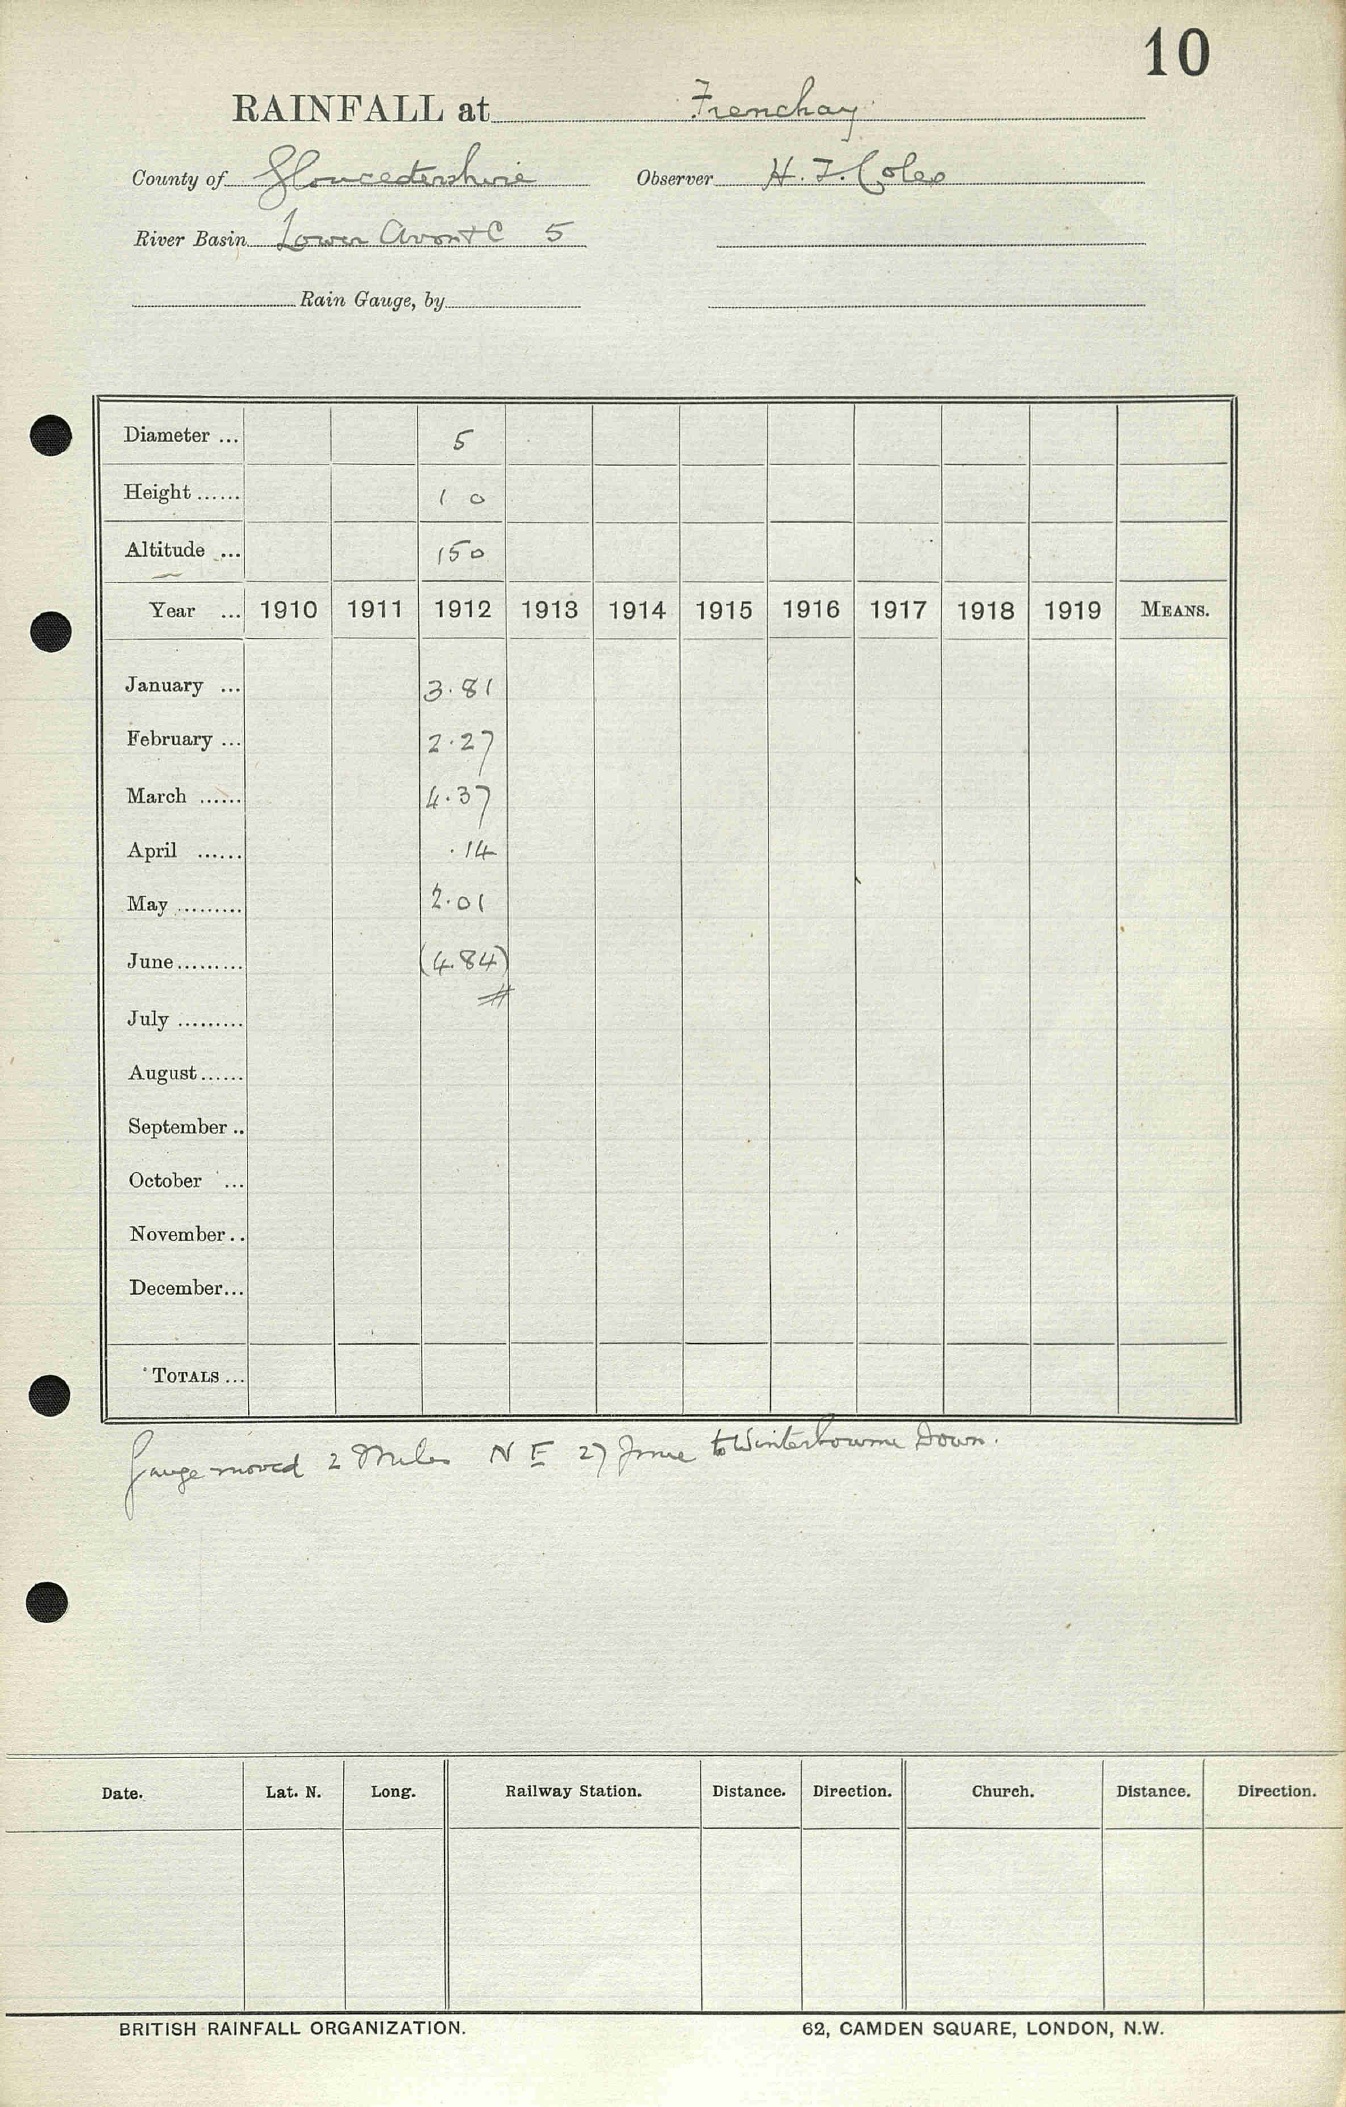 10
RAINFALL at Frenchay
County of Gloucestershire Observer H. T. Coles
River Basin Lower Avon &c 5
Rain Gauge, by
Diameter ... 5
Height ...... 1 0
Altitude ... 150
Year ... 1910 1911 1912 1913 1914 1915 1916 1917 1918 1919 MEANS.
January ... 3.81
February ... 2.27
March ...... 4.37
April ...... .14
May ......... 2.01
June ......... (4.84)
July .........
August ......
September ..
October ...
November ..
December ...
TOTALS ...
Gauge moved 2 Miles N E 27 June to Winterbourne Down.
Date. Lat. N. Long. Railway Station. Distance. Direction. Church. Distance. Direction.
BRITISH RAINFALL ORGANIZATION. 62, CAMDEN SQUARE, LONDON, N.W.